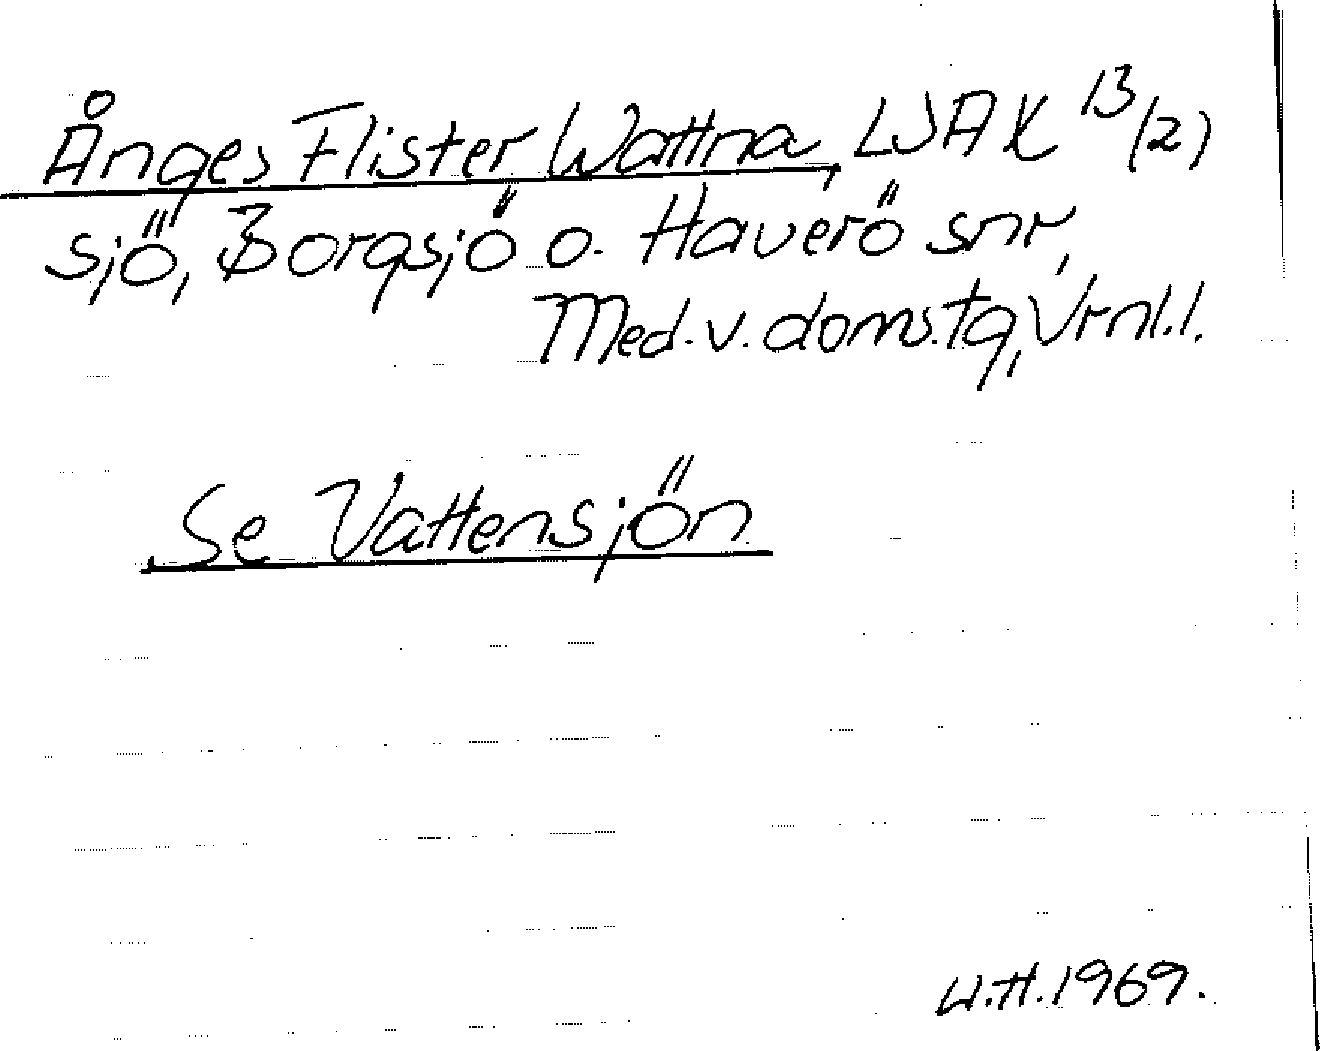 Ånges Flister Wattna, LSAX 13/(2)
sjö, Borgsjö o. Haverö snr,
Med. v. doms.tg, Vrnl.l.
Se Vattensjön
U.H. 1969.